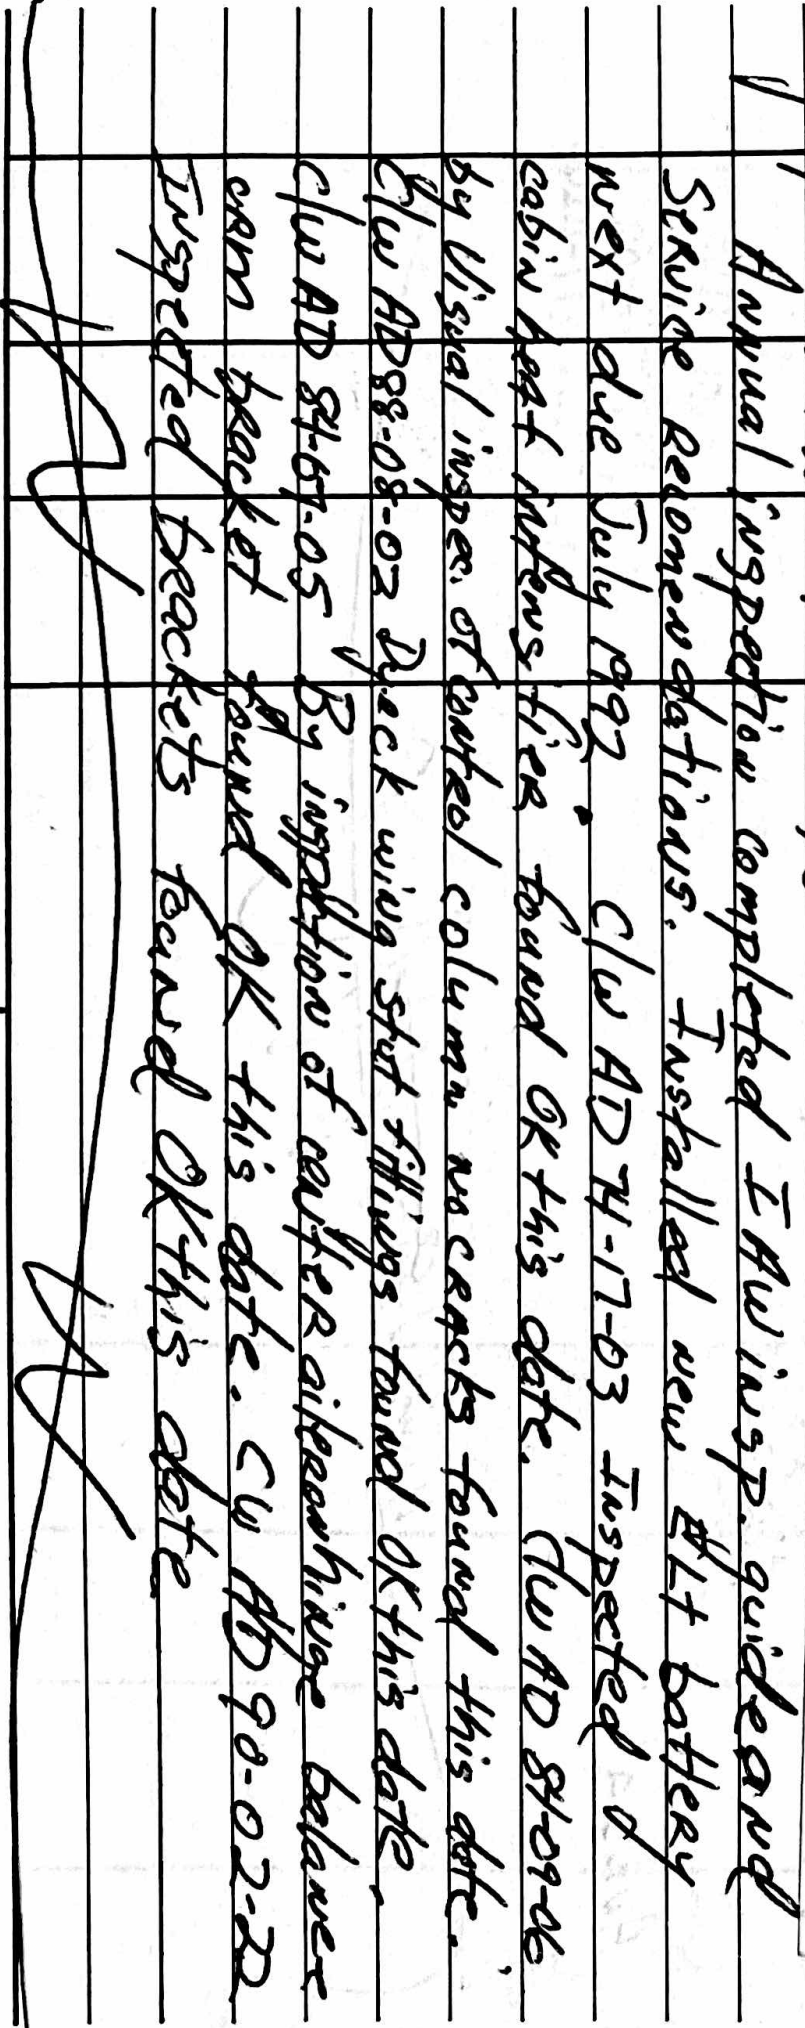 Annual inspection completed IAW insp. guide and
Service Recomendations. Installed new ELT battery
next due July 1992. C/W AD 74-17-03 Inspected
cabin heat intensifier found OK this date. C/W AD 84-09-06
by Visual inspec. of control column no cracks found this date.
C/W AD 88-08-02 Dyeck wing strut fittings found OK this date.
C/W AD 84-07-05 By inspection of center aileron hinge balance
arm bracket found OK this date. CW AD 90-02-22
Inspected brackets found OK this date